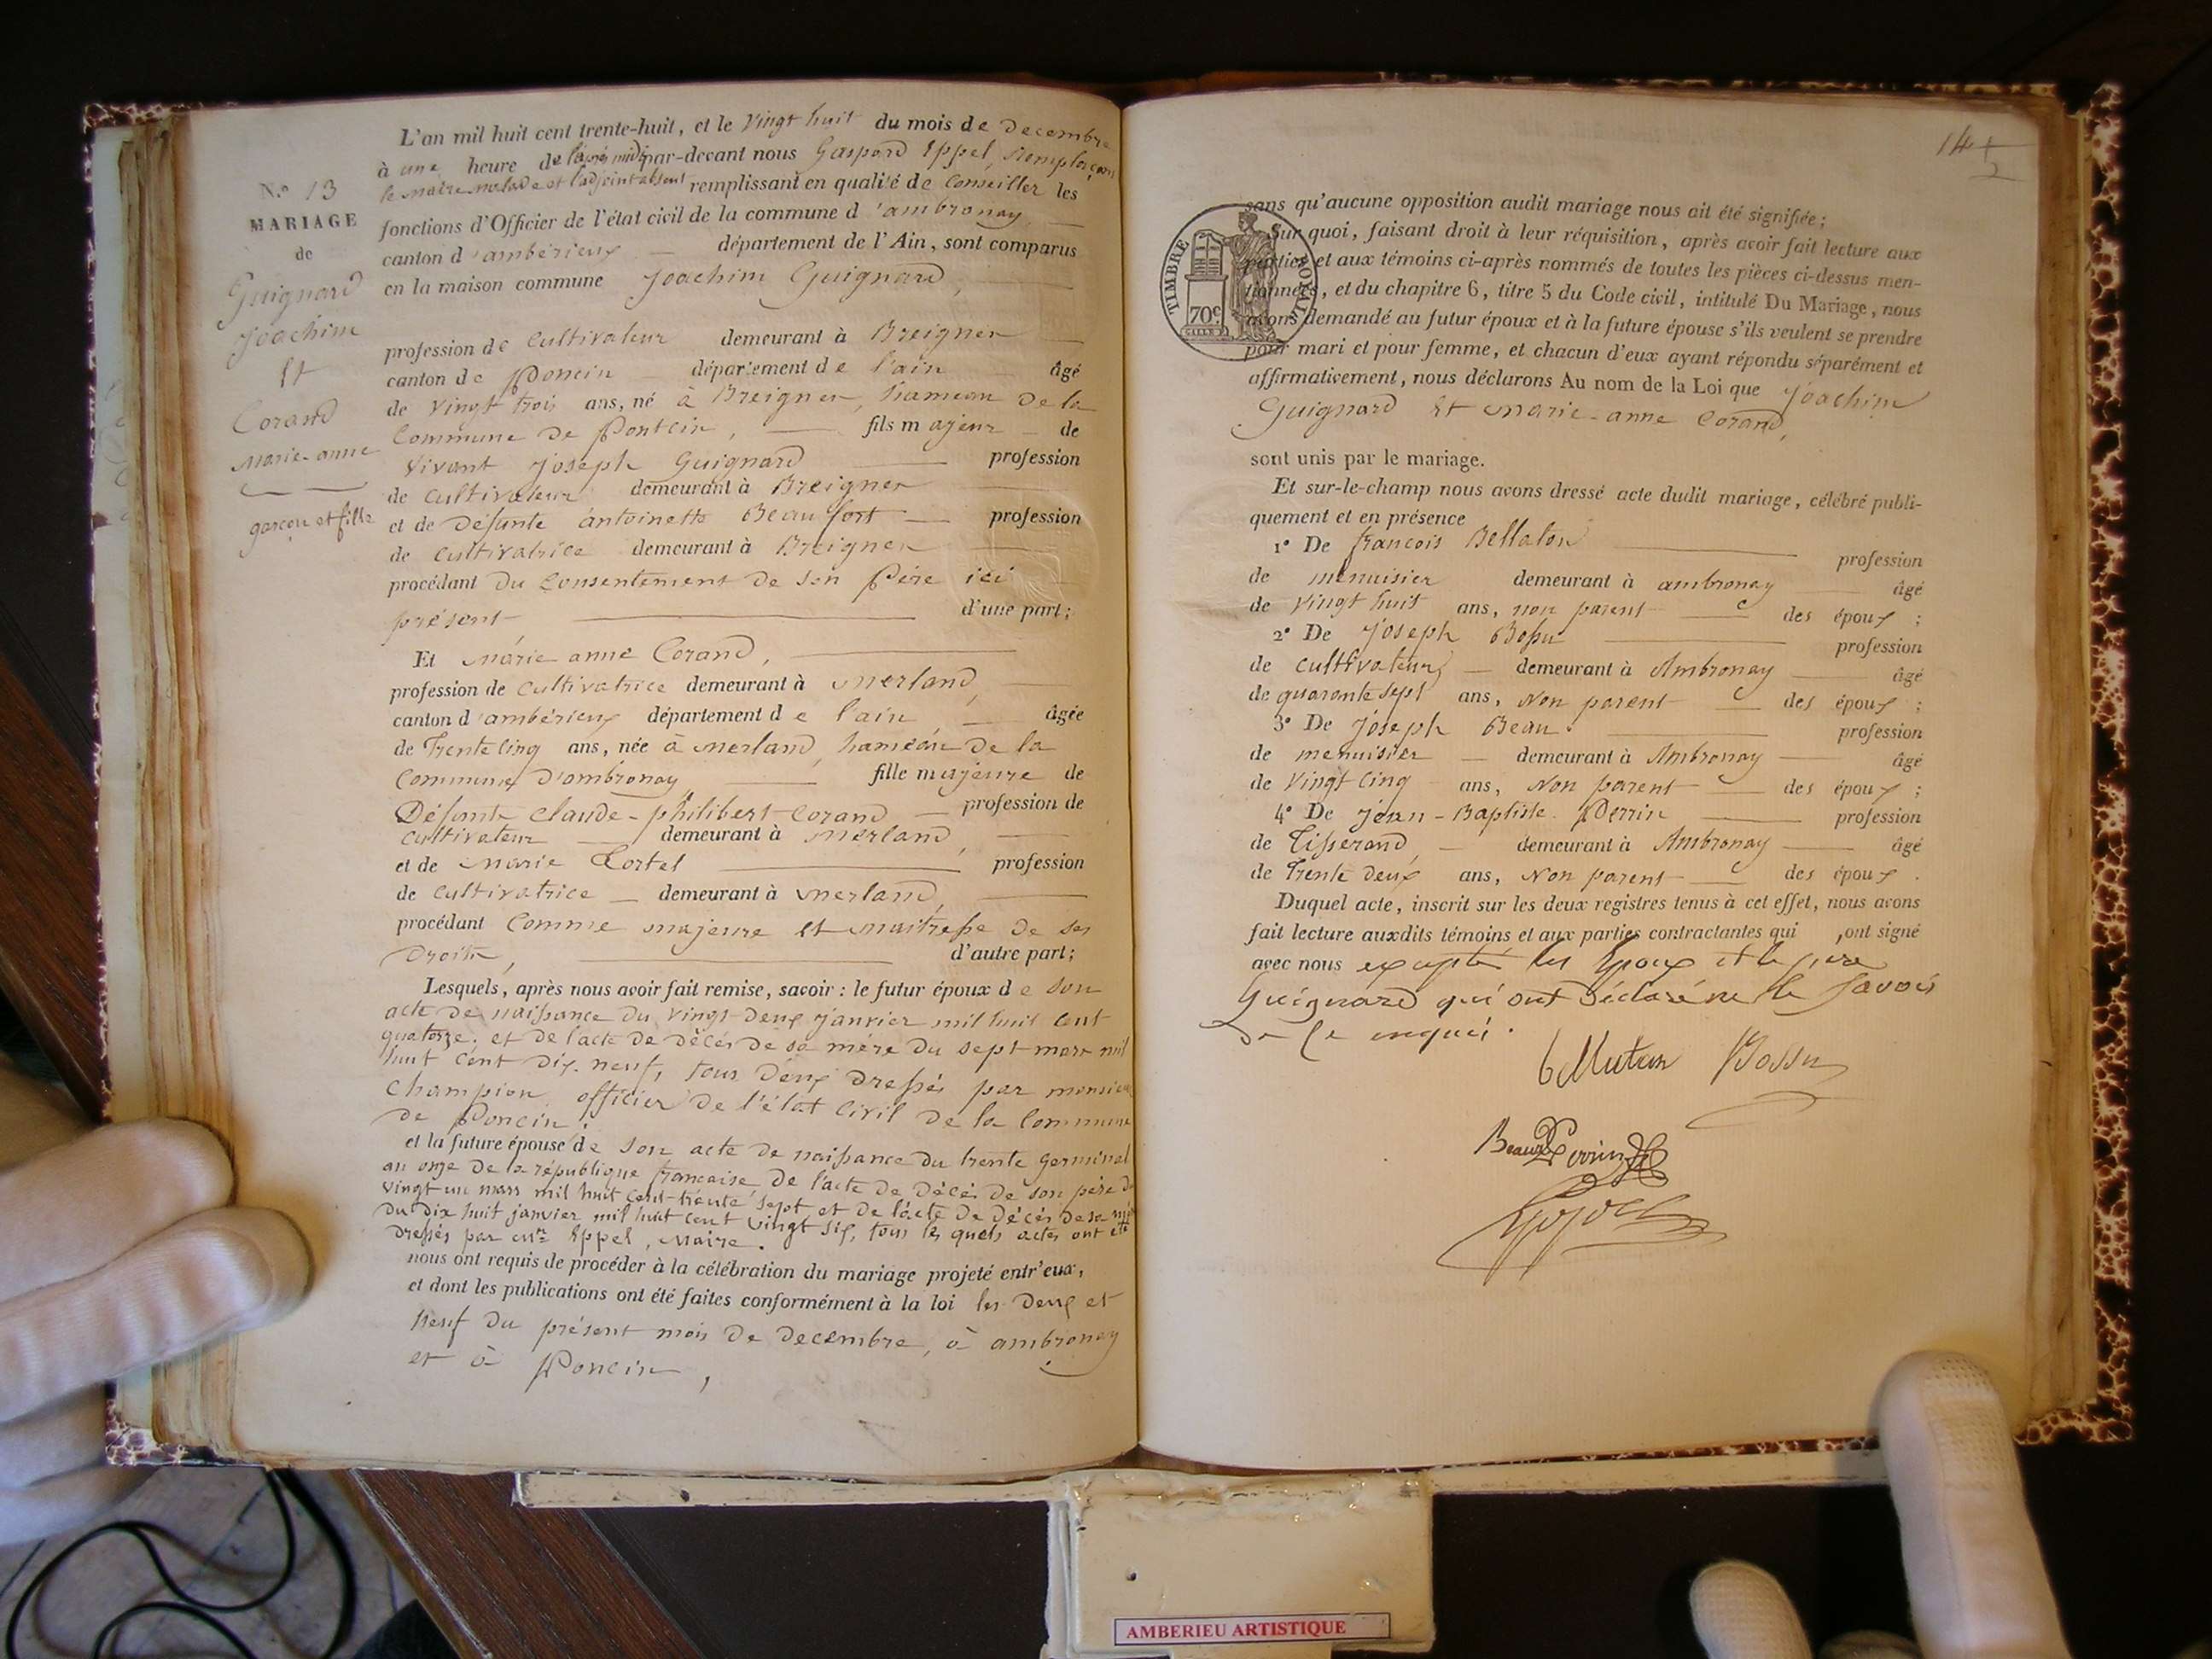 L'an mil huit cent trente-huit, et le Vingt huit du mois de Decembre
à une heure de l'après midi par-devant nous Gaspard Eppel, Remplaçant
le maire malade et l'adjoint absent remplissant en qualité de Conseiller les
fonctions d'Officier de l'état civil de la commune d'ambronay
canton d'ambérieux département de l'Ain, sont comparus
en la maison commune Joachim Guignard,
profession de Cultivateur demeurant à Breignes
canton de Poncin département de l'ain âgé
de Vingt trois ans, né à Breignes, hameau de la
Commune de Pontcin, fils majeur de
Vivant Joseph Guignard profession
de Cultivateur demeurant à Breignes
et de Défunte antoinette Beaufort profession
de Cultivatrice demeurant à Breignes
procédant Du Consentement de son Père ici
présent d'une part;
Et Marie anne Corand,
profession de Cultivatrice demeurant à Merland,
canton d'ambérieux département de l'ain âgée
de Trente Cinq ans, née à Merland, hameau de la
Commune D'ambronay fille majeure de
Défunts Claude-philibert-Corand profession de
Cultivateur demeurant à Merland,
et de Marie Tortel profession
de Cultivatrice demeurant à Merland,
procédant Comme majeure et maitresse De ses
Droits, d'autre part;
Lesquels, après nous avoir fait remise, savoir : le futur époux de son
acte de naissance du Vingt-Deux janvier mil huit Cent
quatorze, et de l'acte de Décès de sa mère du sept mars mil
huit Cent Dix-neuf, tous Deux Dressés par monsieur
Champion officier de l'état Civil de la Commune
de Poncin;
et la future épouse de son acte de naissance du trente germinal
an onze de la république francaise de l'acte de Décès de son père du
Vingt un mars mil huit Cent-trente sept et de l'acte De Décès de sa mère
du Dix huit janvier mil huit cent vingt six, tous les quels actes ont été
Dressés par Mr. Eppel, Maire.
nous ont requis de procéder à la célébration du mariage projeté entr'eux,
et dont les publications ont été faites conformément à la loi les Deux et
Neuf Du présent mois De Decembre, à ambronay
et à Poncin,
N.º 13
MARIAGE
de
Guignard
Joachim
Et
Corand
Marie-anne
garçon et fille
14
sans qu'aucune opposition audit mariage nous ait été signifiée;
Sur quoi, faisant droit à leur réquisition, après avoir fait lecture aux
parties et aux témoins ci-après nommés de toutes les pièces ci-dessus men-
tionnées, et du chapitre 6, titre 5 du Code civil, intitulé Du Mariage, nous
avons demandé au futur époux et à la future épouse s'ils veulent se prendre
pour mari et pour femme, et chacun d'eux ayant répondu séparément et
affirmativement, nous déclarons Au nom de la Loi que Joachim
Guignard Et Marie-anne Corand,
sont unis par le mariage.
Et sur-le-champ nous avons dressé acte dudit mariage, célébré publi-
quement et en présence
1º De francois Bellaton profession
de menuisier demeurant à ambronay âgé
de Vingt huit ans, non parent des époux ;
2º De Joseph Bossu profession
de Cultivateur demeurant à Ambronay âgé
de quarante sept ans, Non parent des époux ;
3º De Joseph Beau profession
de menuisier demeurant à Ambronay âgé
de Vingt Cinq ans, Non parent des époux ;
4º De Jean-Baptiste Perrin profession
de Tisserand, demeurant à Ambronay âgé
de Trente Deux ans, Non parent des époux.
Duquel acte, inscrit sur les deux registres tenus à cet effet, nous avons
fait lecture auxdits témoins et aux parties contractantes qui, ont signé
avec nous excepté les Epoux et le père
Guignard qui ont Déclaré ne le savoir
De ce enquis.
Bossu
Beau Perrin
TIMBRE ROYAL
70c
AMBERIEU ARTISTIQUE